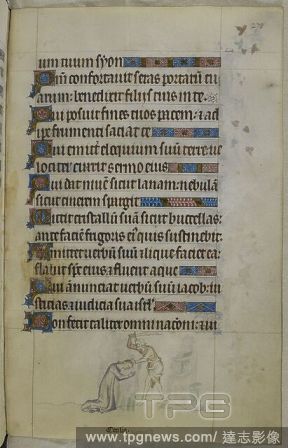 uum tuum syon
Qm̄ confortavit seras portarū tu
arum: benedixit filijs tuis in te
Qui posuit fines tuos pacem: ⁊ ad
ipe frumenti saciat te
Qui emittit eloquium suū terre ve
lociter currit sermo eius
Qui dat nivē sicut lanam: nebulā
sicut cinerem spargit
Mittit cristallū suā sicut bucellas:
ante faciē frigoris ei' quis sustinebit
Emittet verbū suū ⁊ liquefaciet ea
flabit sp̄c eius ⁊ fluent aque
Qui anunciat verbū suū iacob iu
sticias ⁊ iudicia sua isrł
Non fecit taliter omni nacōni: ⁊ iu
TPG
www.tpgnews.com / 達志影像